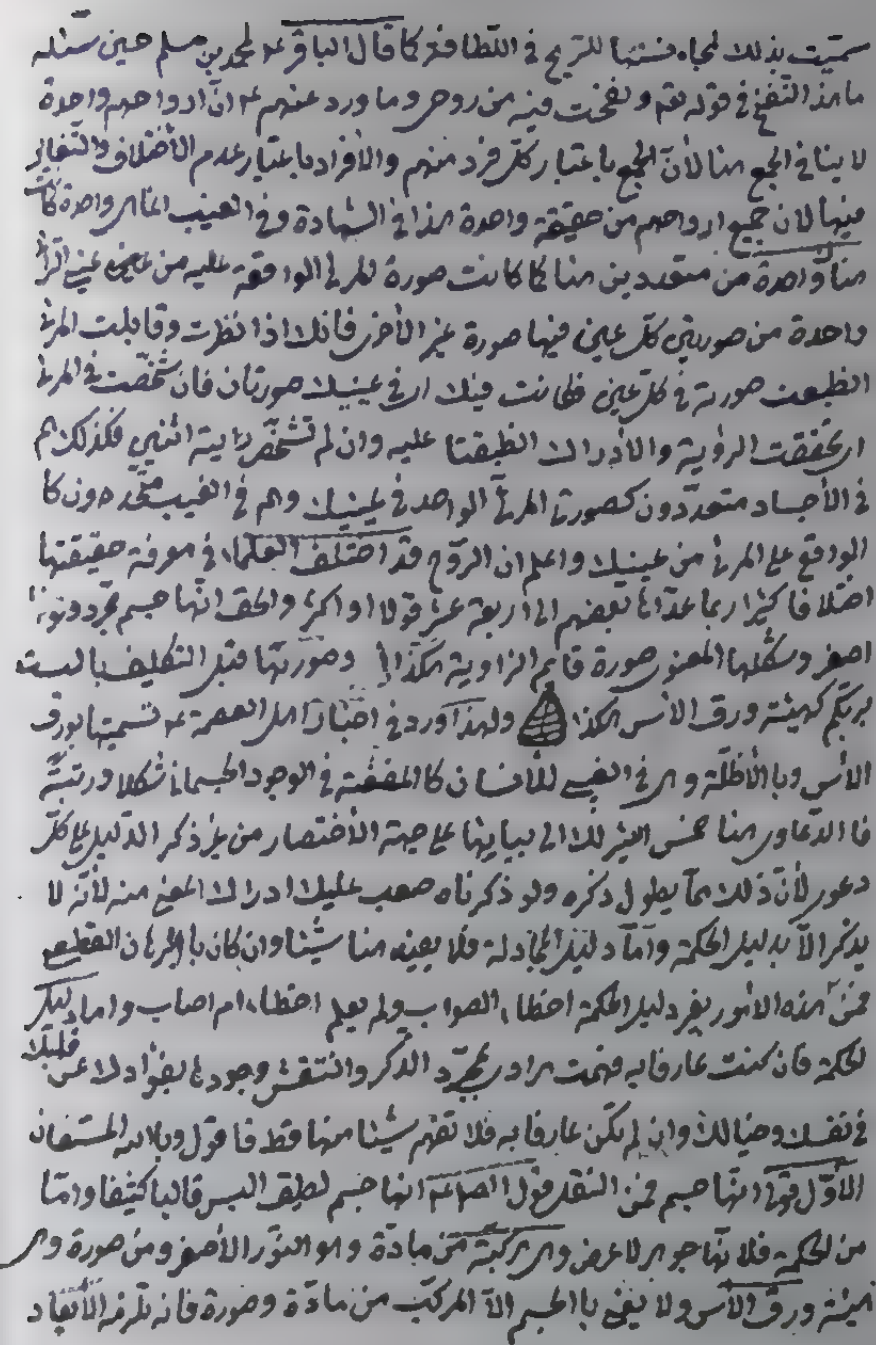 سميت بذلك لمجانستها للريح في اللطافة كما قال الباقر ع لمحمد بن مسلم حين سئله
ما هذا النفخ في قوله تع ونفخت فيه من روحي وما ورد عنهم ع ان ارواحهم واحدة
لا ينافي الجمع هنا لأن الجمع باعتبار كل فرد منهم والافراد باعتبار عدم الأختلاف والتغاير
فيها لان جميع ارواحهم من حقيقة واحدة هذا في الشهادة وفي الغيب انما هي واحدة كانت
هنا واحدة من متعددين هنا كما كانت صورة المرئي الواقعة عليه من عيني الرائي
واحدة من صورتين كل عين فيها صورة غير الأخرى فانك اذا نظرت وقابلت المرئي
انطبعت صورته في كل عين فكانت فيك اي في عينيك صورتان فان شخصت في المرئي
اي تحققت الرؤية والأدراك انطبقتا عليه وان لم تشخص رايته اثنين فكذلك هم
في الأجساد متعددون كصورتي المرئي الواحد في عينيك وهم في الغيب متحدون كا
لواقع على المرئي من عينيك واعلم ان الروح قد اختلف العلماء في معرفة حقيقتها
اختلافا كثيرا ربما عدها بعضهم الى اربعة عشر قولا او اكثر والحق انها جسم مجرد ونور
اصفر وشكلها المعنوي صورة قايم الزاوية هكذا ا وصورتها قبل التكليف بالست
بربكم كهيئة ورق الأس هكذا ولهذا ورد في اخبار اهل العصمة ع تسميتها بورق
الأس وبالأظلة وهي في الغيب للأنسان كالمضغة في الوجود الجسماني شكلا ورتبة
فالدعاوي هنا خمس اشير لك الى بيانها على جهة الأختصار من غير ذكر الدليل على كل
دعوى لأن ذلك مما يطول ذكره ولو ذكرناه صعب عليك ادراك المعنى منه لأنه لا
يذكر الا بدليل الحكمة واما دليل المجادلة فلا يفيد هنا شيئا وان كان بالبرهان القطعي
فمن هذه الامور بغير دليل الحكمة اخطاء الصواب ولم يعلم اخطاء ام اصاب واما دليل
الحكمة فان كنت عارفا به فهمت مرادي بمجرد الذكر وانتقش وجودها بفؤادك عن قلبك
في نفسك وخيالك وان لم تكن عارفا به فلا تفهم شيئا منها قط فاقول وبالله المستعان
الأول قولنا انها جسم فمن النقل قول الصادق ع انها جسم لطيف البس قالبا كثيفا واما
من الحكمة فلانها جوهر لا عرض وهي مركبة من مادة وهو النور الأصفر ومن صورة وهي
هيئة ورق الأس ولا يعني بالجسم الا المركب من مادة وصورة فانه تلزمه الأبعاد